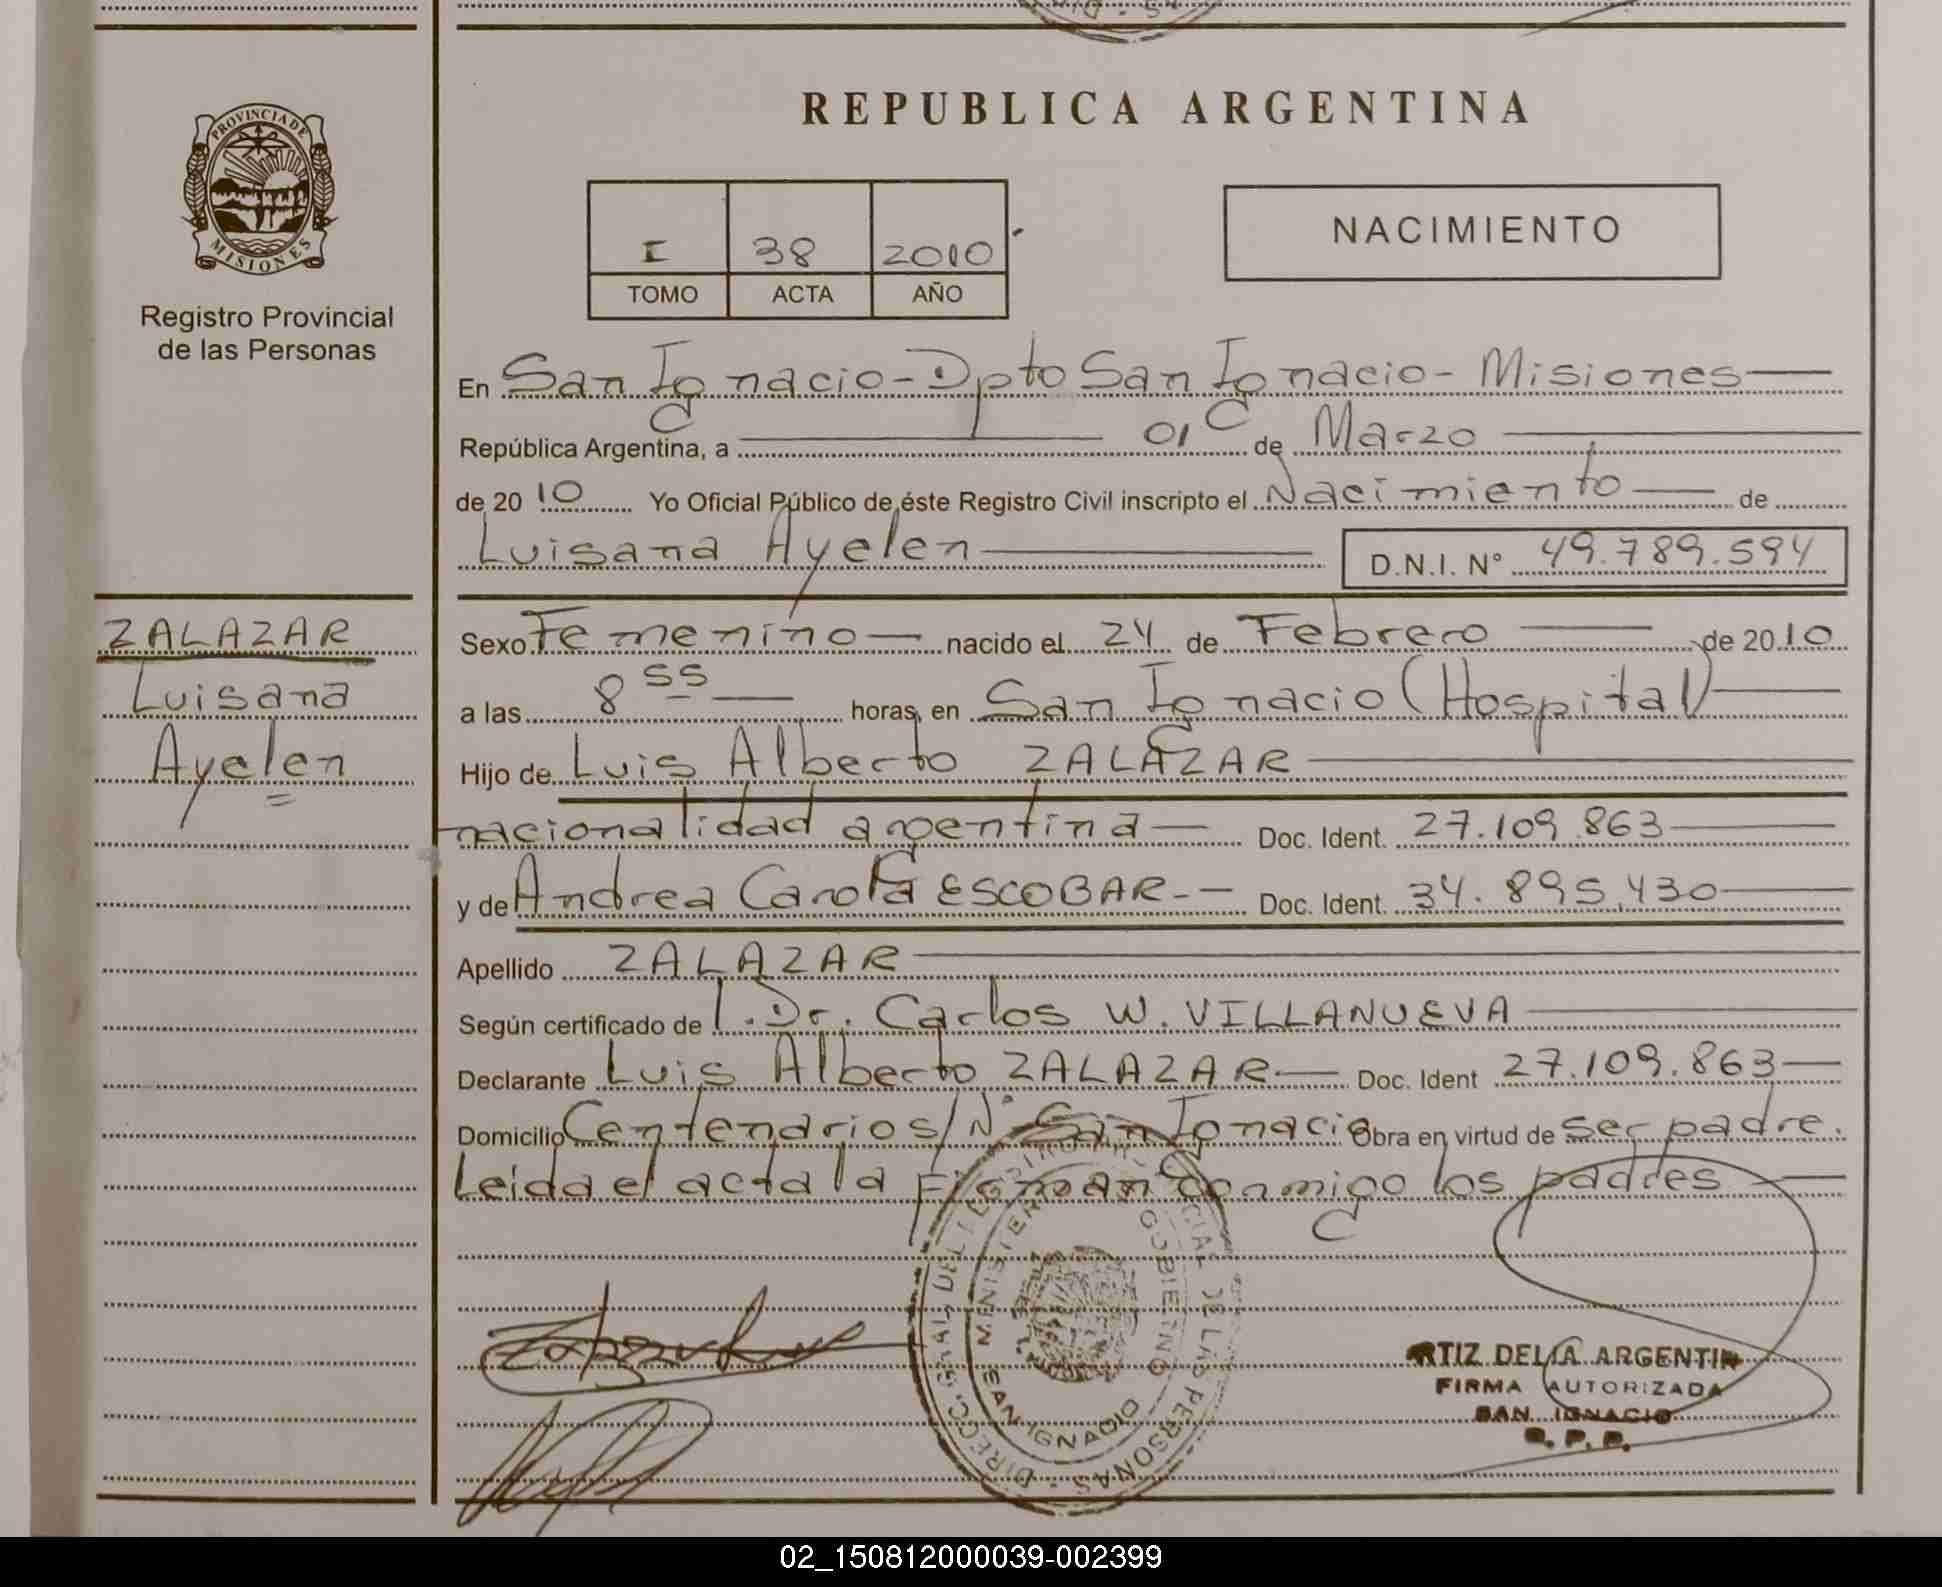 REPUBLICA ARGENTINA
PROVINCIA DE
MISIONES
Registro Provincial
de las Personas
I 38 2010
TOMO ACTA AÑO
NACIMIENTO
En San Ignacio - Dpto San Ignacio - Misiones
República Argentina, a 01 de Marzo
de 2010 Yo Oficial Público de éste Registro Civil inscripto el Nacimiento de
Luisana Ayelen D.N.I. Nº 49.789.594
ZALAZAR
Luisana
Ayelen
Sexo Femenino nacido el 24 de Febrero de 2010
a las 8 55 horas, en San Ignacio (Hospital)
Hijo de Luis Alberto ZALAZAR
nacionalidad argentina Doc. Ident. 27.109.863
y de Andrea Carola ESCOBAR Doc. Ident. 34.895.430
Apellido ZALAZAR
Según certificado de l. Dr. Carlos W. VILLANUEVA
Declarante Luis Alberto ZALAZAR Doc. Ident 27.109.863
Domicilio Centenario s/Nº San Ignacio Obra en virtud de ser padre.
Leida el acta la firman conmigo los padres
DIRECC. GRAL. DEL REGISTRO PROVINCIAL DE LAS PERSONAS
MINISTERIO GOBIERNO
SAN IGNACIO
RTIZ DELIA ARGENTIN
FIRMA AUTORIZADA
SAN IGNACIO
R. P. P.
02_150812000039-002399